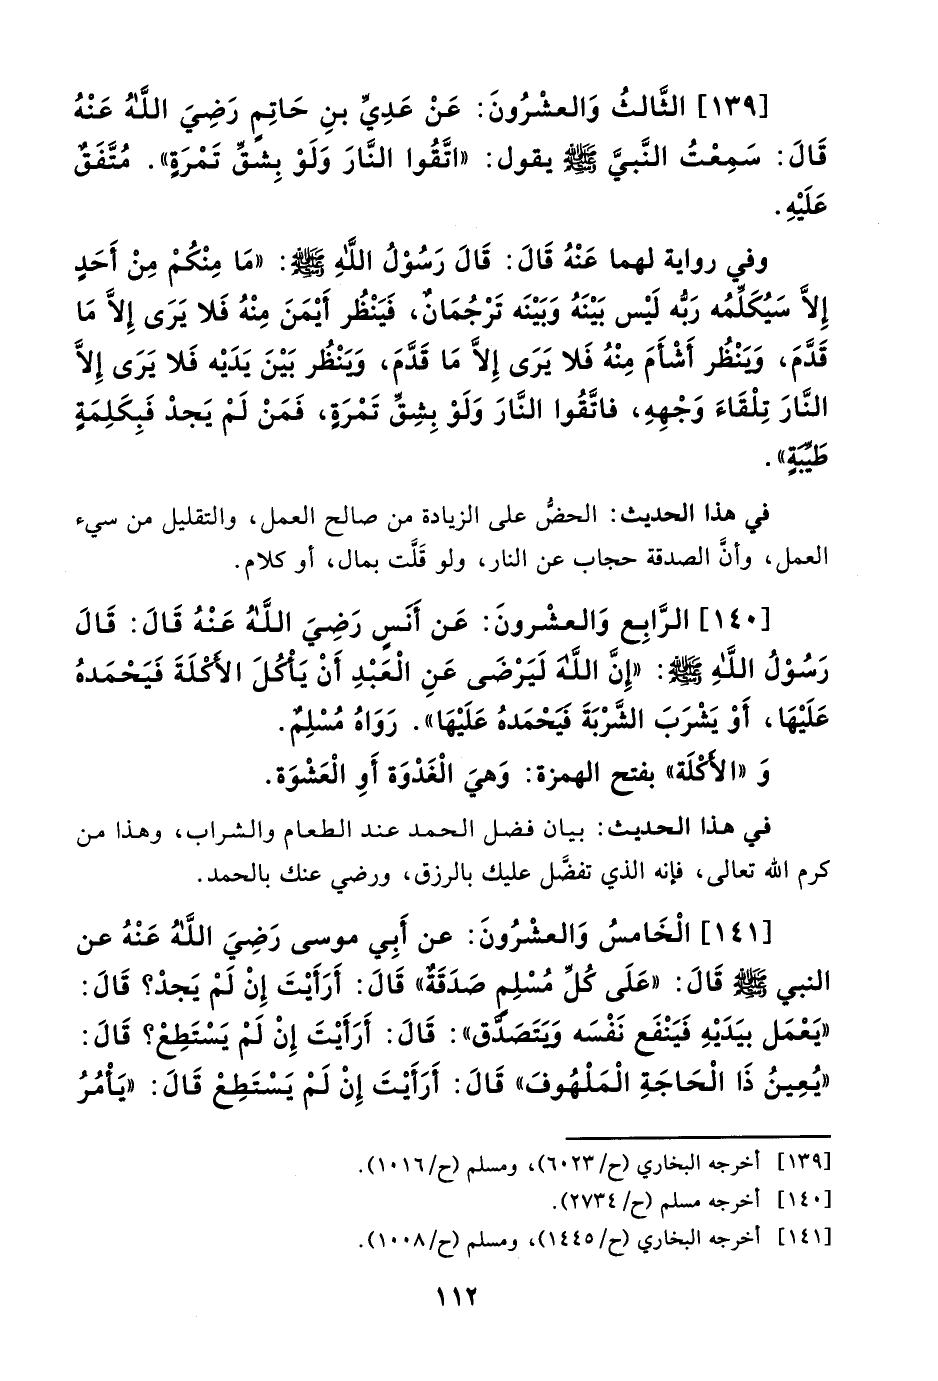 [١٣٩] الثَّالثُ وَالعشْرُونَ: عَنْ عَدِيِّ بنِ حَاتِمٍ رَضِيَ اللَّهُ عَنْهُ
قَالَ: سَمِعْتُ النَّبيَّ ﷺ يقول: «اتَّقُوا النَّارَ وَلَوْ بِشقِّ تَمْرَةٍ». مُتَّفَقٌ
عَلَيْهِ.
وفي رواية لهما عَنْهُ قَالَ: قَالَ رَسُوْلُ اللَّهِ ﷺ: «مَا مِنْكُمْ مِنْ أَحَدٍ
إِلاَّ سَيُكَلِّمُه رَبُّه لَيْس بَيْنَهُ وَبَيْنَه تَرْجُمَانٌ، فَيَنْظُر أَيْمَنَ مِنْهُ فَلا يَرَى إِلاَّ مَا
قَدَّمَ، وَيَنْظُر أَشْأَمَ مِنْهُ فَلا يَرَى إلاَّ مَا قَدَّمَ، وَيَنْظُر بَيْنَ يَدَيْه فَلا يَرَى إلاَّ
النَّارَ تِلْقَاءَ وَجْهِهِ، فاتَّقُوا النَّارَ وَلَوْ بِشِقِّ تَمْرَةٍ، فَمَنْ لَمْ يَجدْ فَبِكَلِمَةٍ
طَيِّبَةٍ».
في هذا الحديث: الحضُّ على الزيادة من صالح العمل، والتقليل من سيء
العمل، وأنَّ الصدقة حجاب عن النار، ولو قَلَّت بمال، أو كلام.
[١٤٠] الرَّابِع وَالعشْرونَ: عَن أَنَسٍ رَضِيَ اللَّهُ عَنْهُ قَالَ: قَالَ
رَسُوْلُ اللَّهِ ﷺ: «إِنَّ اللَّهَ لَيَرْضَى عَنِ الْعَبْدِ أَنْ يَأْكُلَ الأَكْلَةَ فَيَحْمَدهُ
عَلَيْهَا، أَوْ يَشْرَبَ الشَّرْبَةَ فَيَحْمَدهُ عَلَيْهَا». رَوَاهُ مُسْلِمٌ.
وَ «الأَكْلَة» بفتح الهمزة: وَهيَ الْغَدْوَة أَوِ الْعَشْوَة.
في هذا الحديث: بيان فضل الحمد عند الطعام والشراب، وهذا من
كرم الله تعالى، فإنه الذي تفضَّل عليك بالرزق، ورضي عنك بالحمد.
[١٤١] الْخَامسُ وَالعشْرُونَ: عن أَبِي موسى رَضِيَ اللَّهُ عَنْهُ عن
النبي ﷺ قَالَ: «عَلَى كُلِّ مُسْلِمٍ صَدَقَةٌ» قَالَ: أَرَأَيْتَ إِنْ لَمْ يَجدْ؟ قَالَ:
«يَعْمَل بِيَدَيْهِ فَيَنْفَع نَفْسَه وَيَتَصَدَّق»: قَالَ: أَرَأَيْتَ إِنْ لَمْ يَسْتَطِعْ؟ قَالَ:
«يُعِينُ ذَا الْحَاجَةِ الْمَلْهُوفَ» قَالَ: أَرَأَيْتَ إِنْ لَمْ يَسْتَطِعْ قَالَ: «يَأْمُرُ
[١٣٩] أخرجه البخاري (ح/٦٠٢٣)، ومسلم (ح/١٠١٦).
[١٤٠] أخرجه مسلم (ح/٢٧٣٤).
[١٤١] أخرجه البخاري (ح/١٤٤٥)، ومسلم (ح/١٠٠٨).
١١٢